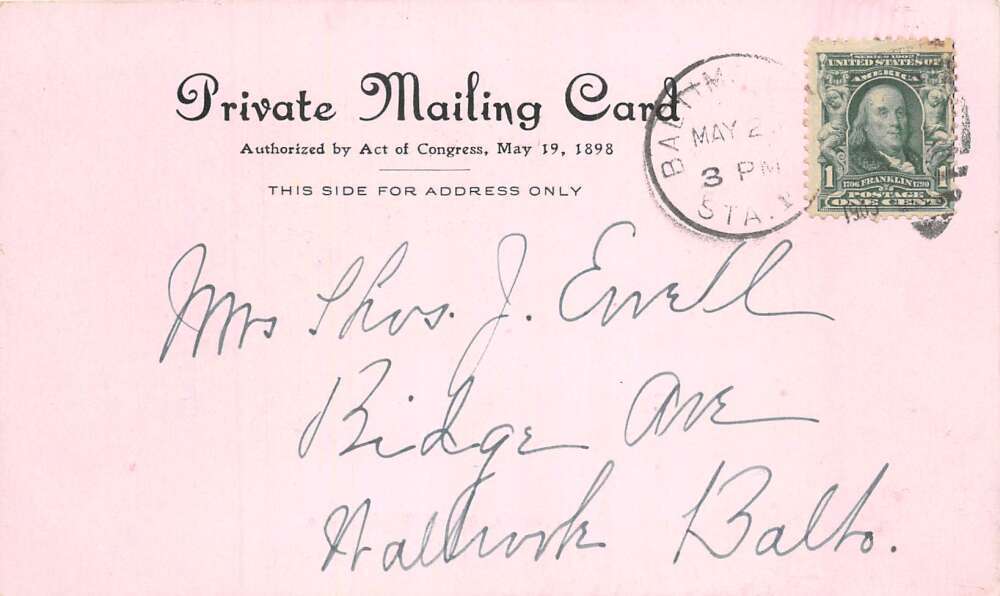 Private Mailing Card
Authorized by Act of Congress, May 19, 1898
THIS SIDE FOR ADDRESS ONLY
BALTIM
MAY 2
3 PM
STA. 1
SERIES 1902
UNITED STATES OF
AMERICA
1 1
1706 FRANKLIN 1790
POSTAGE
ONE CENT
Mrs Thos. J. Ewell
Bidge Ave
Walbrook Balto.